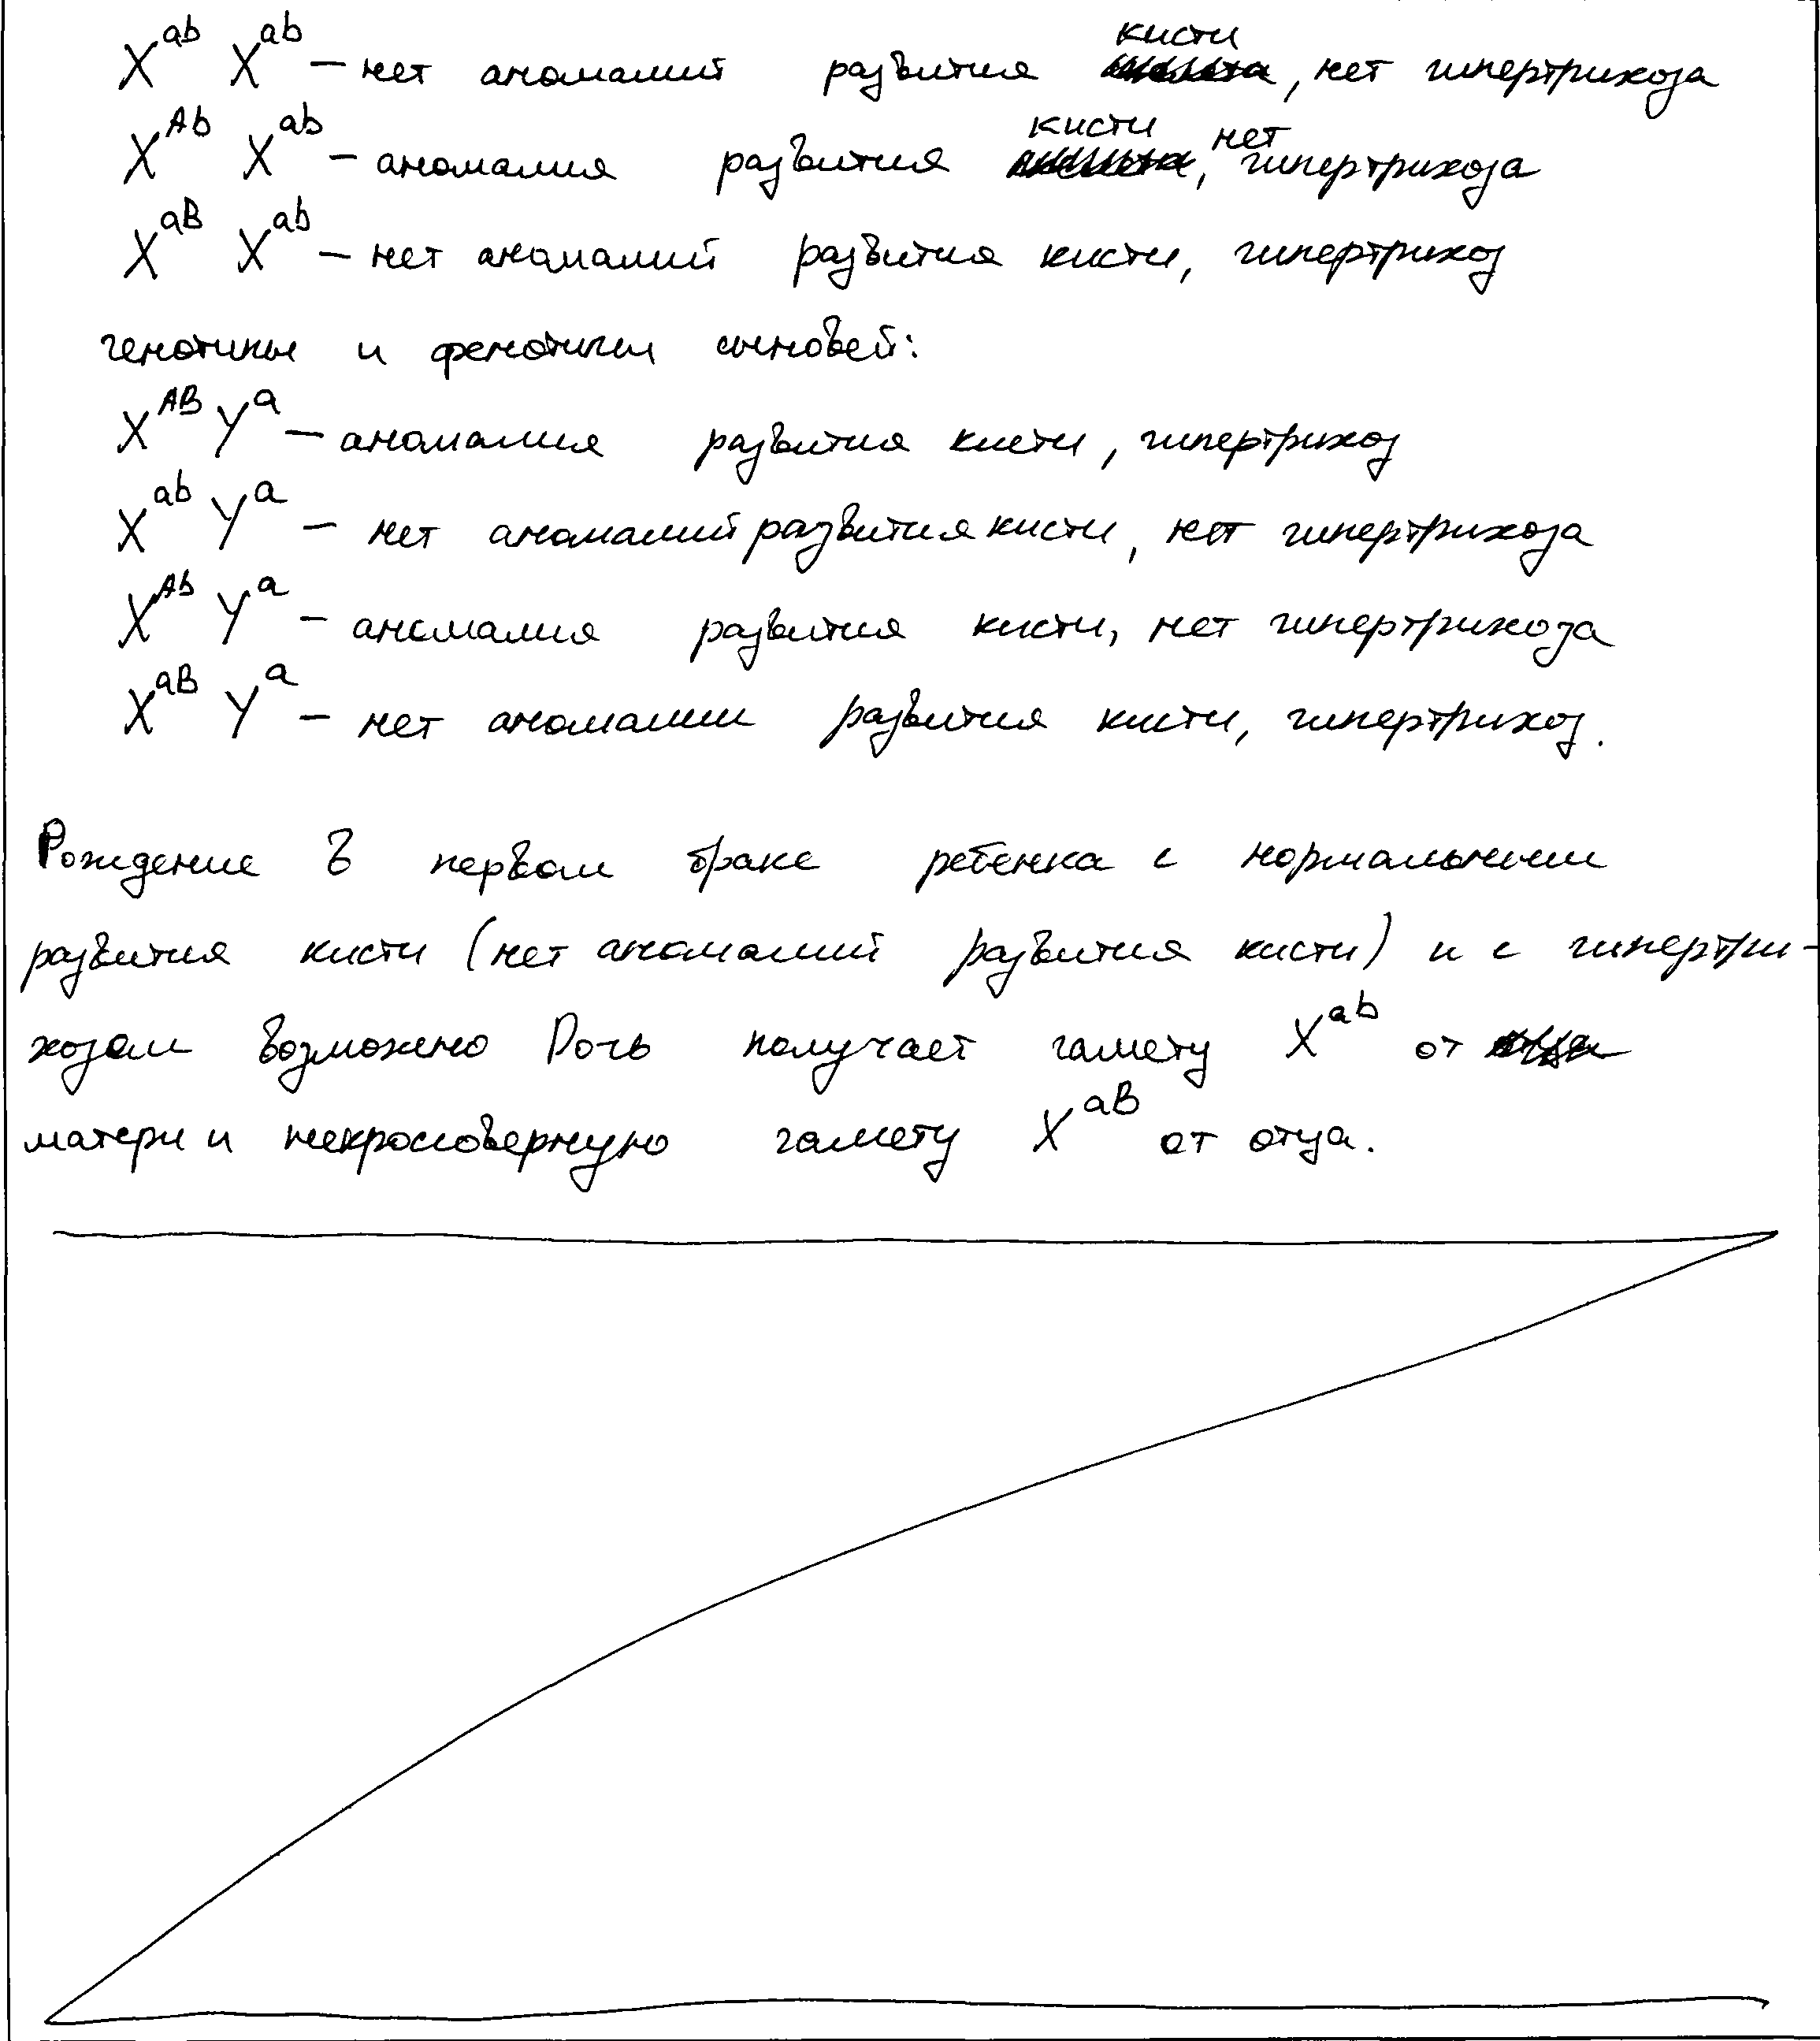 X^ab X^ab – нет аномалий развития кисти, нет гипертрихоза
X^Ab X^ab – аномалия развития кисти, нет гипертрихоза
X^aB X^ab – нет аномалий развития кисти, гипертрихоз
генотипы и фенотипы сыновей:
X^AB Y^a – аномалия развития кисти, гипертрихоз
X^ab Y^a – нет аномалий развития кисти, нет гипертрихоза
X^Ab Y^a – аномалия развития кисти, нет гипертрихоза
X^aB Y^a – нет аномалии развития кисти, гипертрихоз.
Рождение в первом браке ребенка с нормальным
развития кисти (нет аномалий развития кисти) и с гипертри-
хозом возможено Дочь получает гамету X^ab от
матери и некроссоверную гамету X^aB от отца.